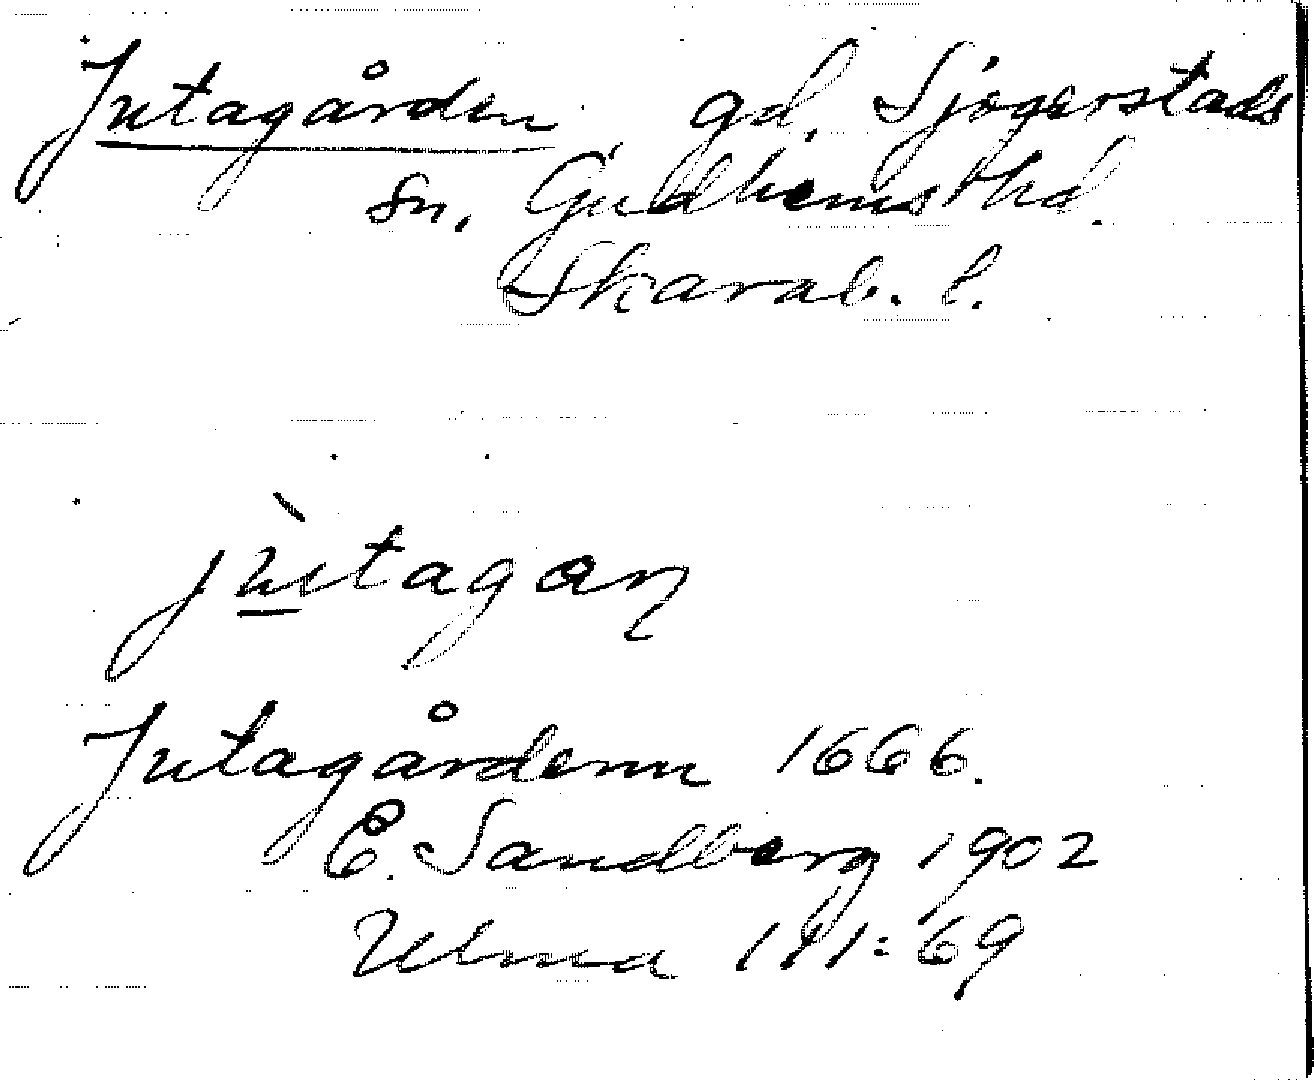 Jutagården, gd, Sjogerstads
sn, Gudhems hd.
Skarab. l.
jùtagan
Jutagårdenn 1666.
E. Sandberg 1902
Ulma 111:69